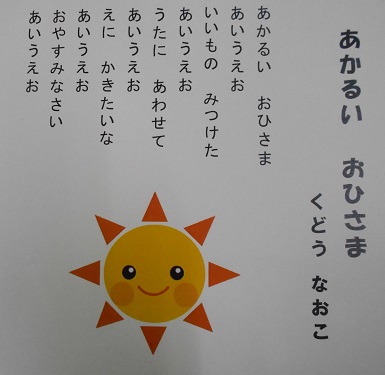 あかるい　おひさま
くどう　なおこ
あかるい　おひさま
あいうえお
いいもの　みつけた
あいうえお
うたに　あわせて
あいうえお
えに　かきたいな
あいうえお
おやすみなさい
あいうえお